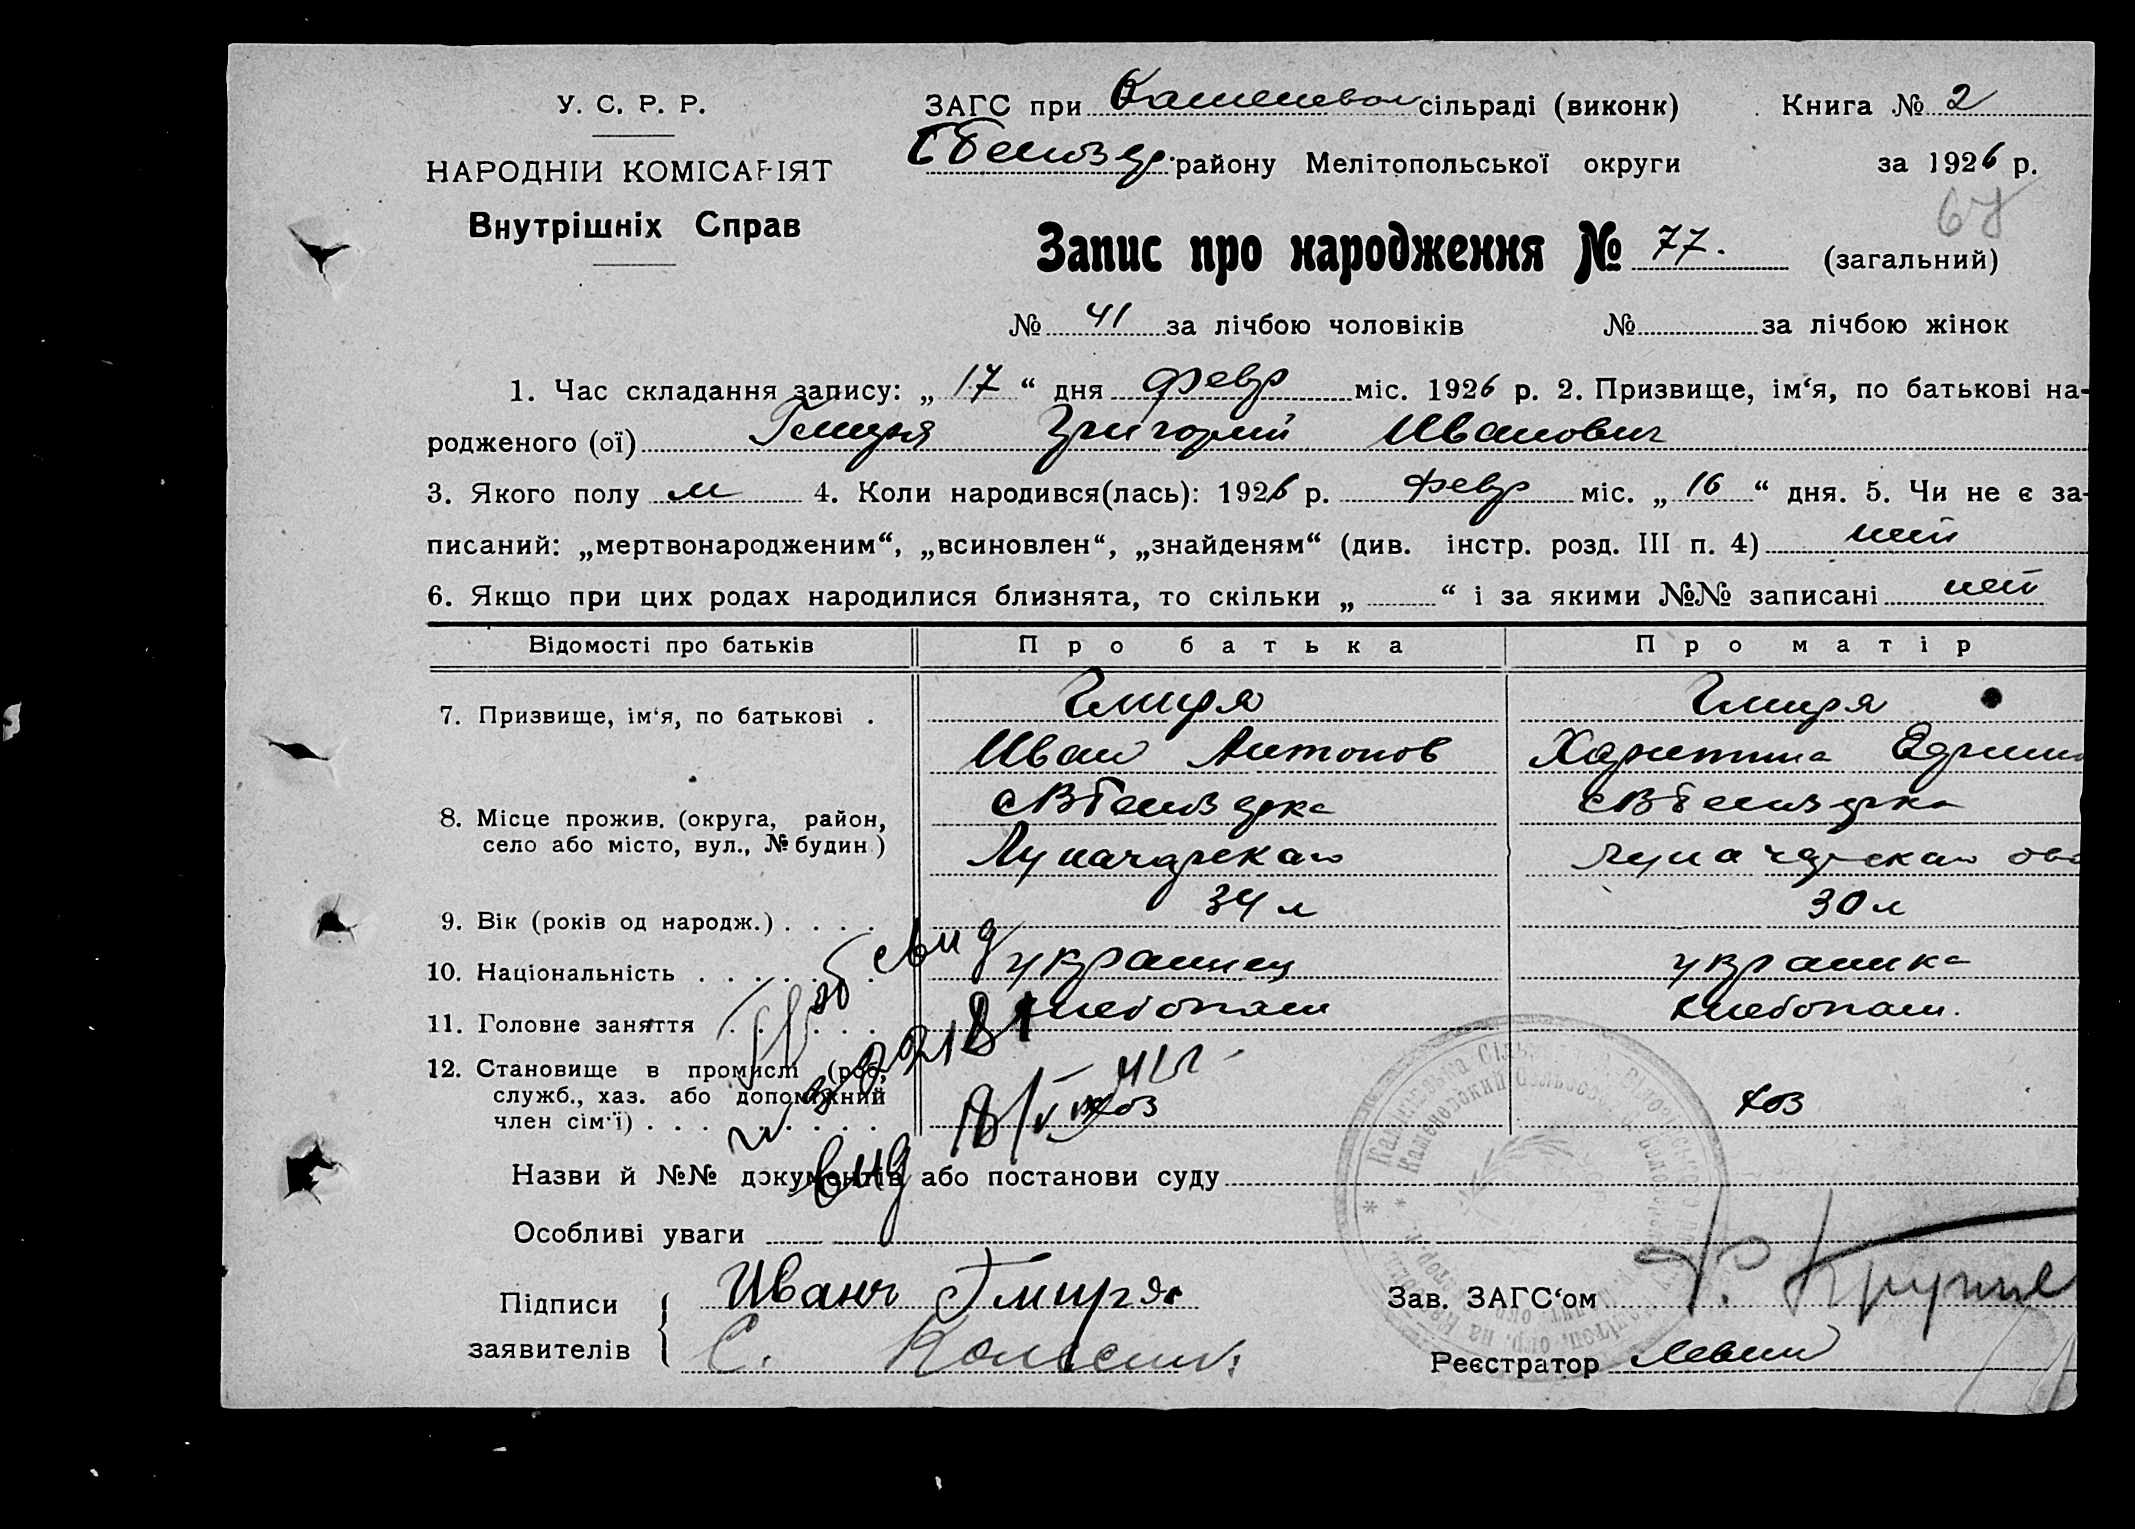 У. С. Р. Р.
НАРОДНІЙ КОМІСАРІЯТ
Внутрішніх Справ
ЗАГС при сільраді (виконк) Книга № 2
району Мелітопольської округи за 1926 р.
Запис про народження № 77. (загальний)
№ 41 за лічбою чоловіків № за лічбою жінок
1. Час складання запису: „ 17 “ дня февр міс. 1926 р. 2. Призвище, ім‘я, по батькові на-
родженого (ої) Гмиря Григорий Иванович
3. Якого полу м 4. Коли народився(лась): 1926 р. февр міс. „ 16 “ дня. 5. Чи не є за-
писаний: „мертвонародженим“, „всиновлен“, „знайденям“ (див. інстр. розд. III п. 4) нет
6. Якщо при цих родах народилися близнята, то скільки „ “ і за якими №№ записані нет
Відомості про батьків Про батька Про матір
7. Призвище, ім‘я, по батькові . Гмиря Гмиря
Иван Антонов Харитина
8. Місце прожив. (округа, район,
село або місто, вул., № будин.)
9. Вік (років од народж.) . . . . 34 л 30 л
10. Національність . . . . . . украинец украинка
11. Головне заняття . . . . . . хлебопаш хлебопаш.
12. Становище в промислі (роб,
служб., хаз. або допоміжний
член сім‘ї) . . . . . . . . . хоз хоз
Назви й №№ документів або постанови суду
Особливі уваги
Підписи Иванъ Гмиря Зав. ЗАГС‘ом
заявителів Реєстратор Левин